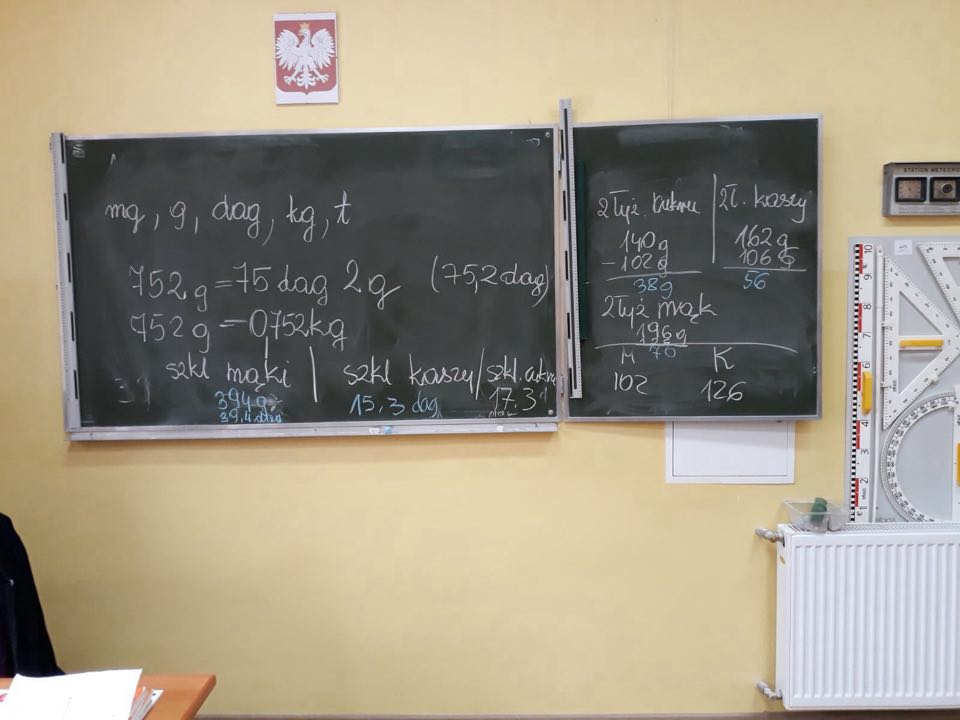 mg, g, dag, kg, t
752g = 75 dag 2g (75,2 dag)
752g = 0,752kg
szkl mąki | szkl kaszy / szkl. cukru
394g 15,3 dag 17,3
39,4 dag
2 łyż. cukru | 2ł. kaszy
140g 162g
- 102g 106g
38g 56
2 łyż mąk
196g
70
M K
102 126
STATION METEO